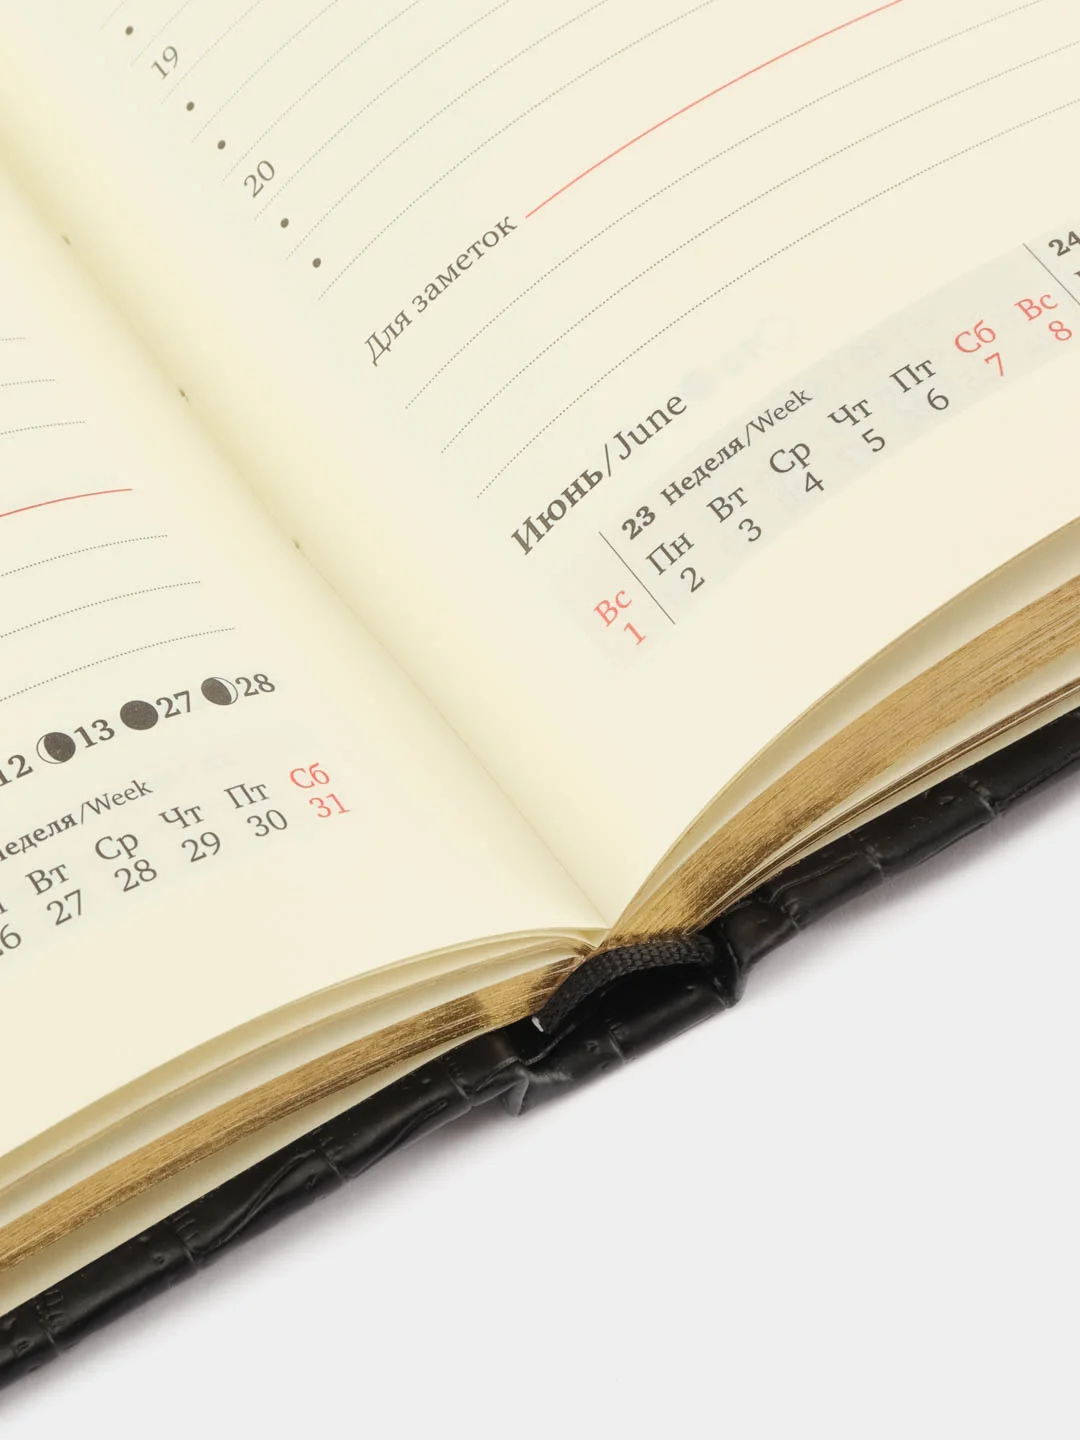 12 13 27 28
/Week
Вт Ср Чт Пт Сб
27 28 29 30 31
19
20
Для заметок
Июнь/June
23 Неделя/Week 24
Вс Пн Вт Ср Чт Пт Сб Вс
1 2 3 4 5 6 7 8